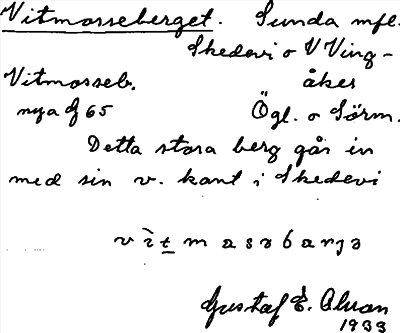 Vitmosseberget. Sunda mfl.
Skedevi o V Ving-
Vitmosseb. åker
nya G 65 Ögl. o Sörm.
Detta stora berg går in
med sin v. kant i Skedevi
v ì t m a s ə b a r j ə
Gustaf E. Alvan
1933